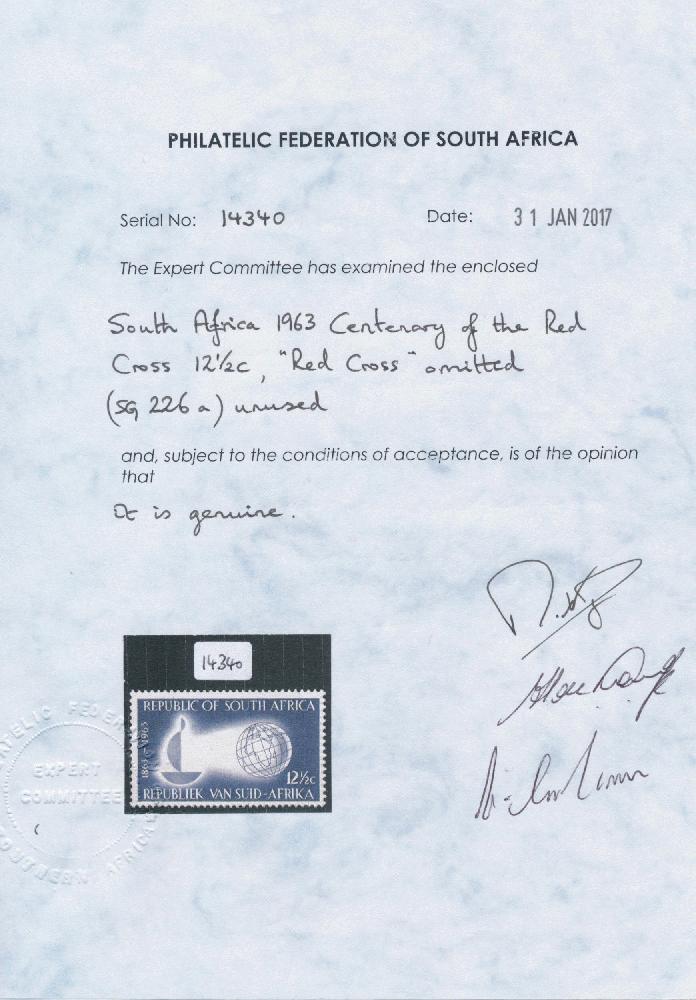 PHILATELIC FEDERATION OF SOUTH AFRICA
Serial No: 14340 Date: 31 JAN 2017
The Expert Committee has examined the enclosed
South Africa 1963 Centenary of the Red
Cross 12½c, "Red Cross" omitted
(SG 226a) unused
and, subject to the conditions of acceptance, is of the opinion
that
It is genuine.
14340
REPUBLIC OF SOUTH AFRICA
1863 1963
12½c
REPUBLIEK VAN SUID-AFRIKA
EXPERT
COMMITTEE